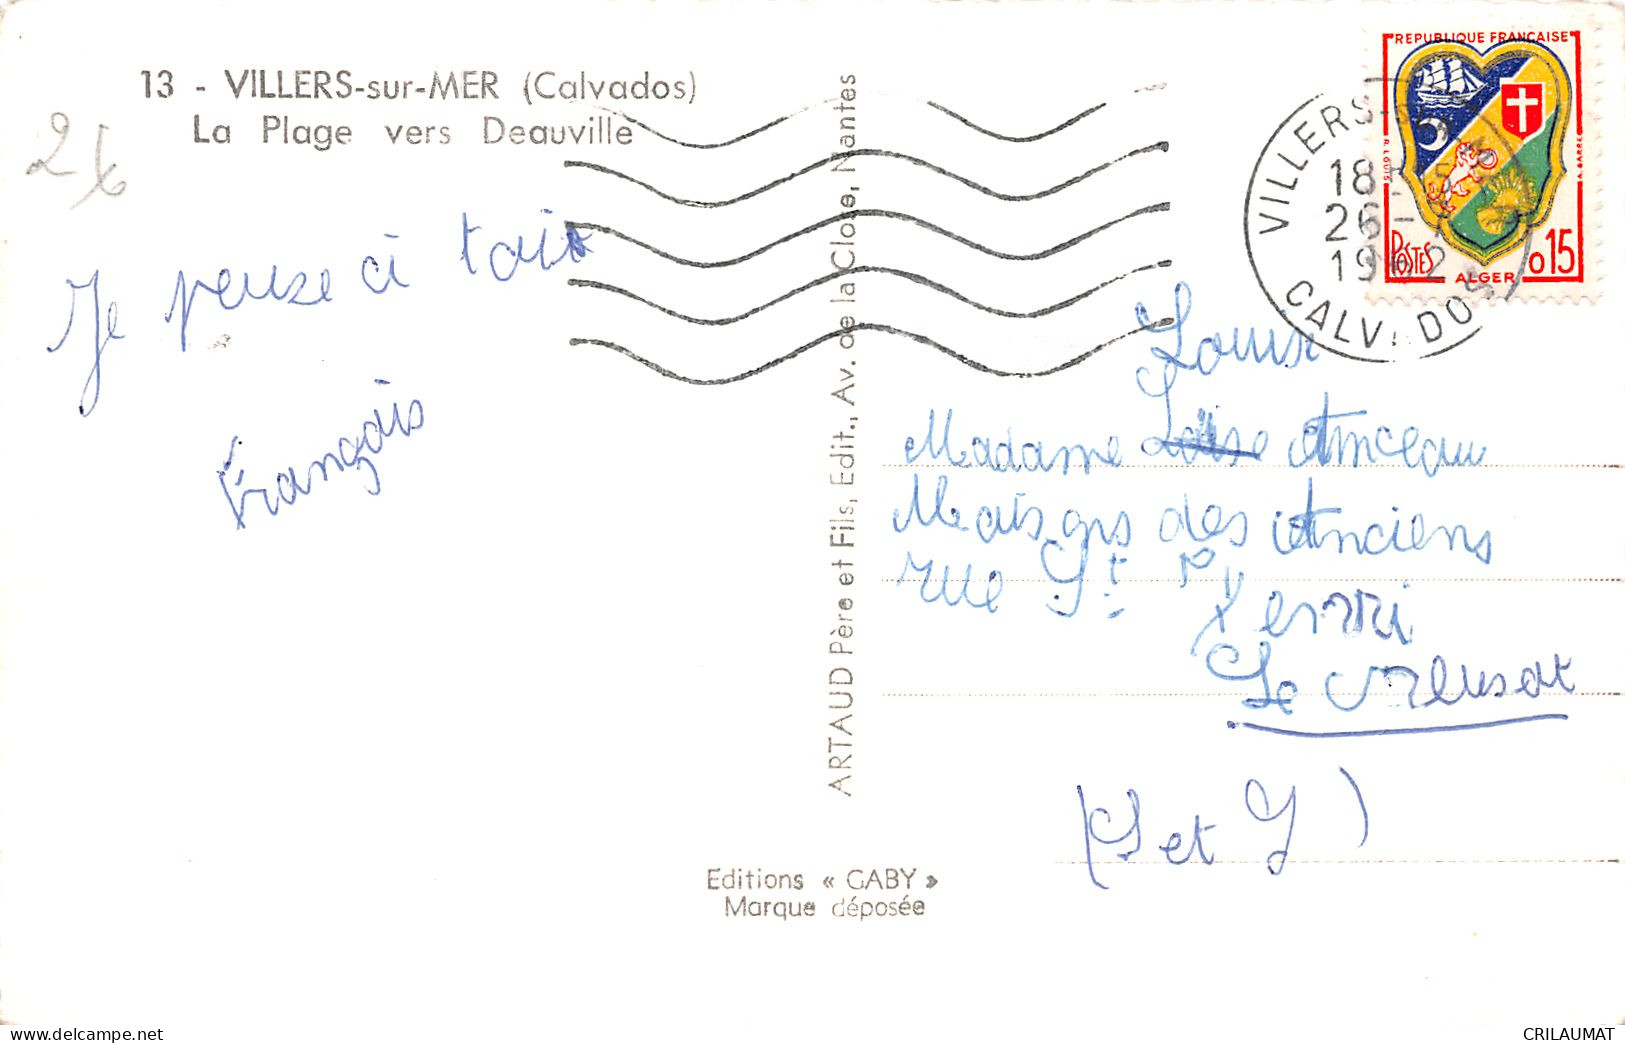 13 - VILLERS-sur-MER (Calvados)
La Plage vers Deauville
Je peuze a toi
François
ARTAUD Père et Fils, Edit., Av. de la Close, Nantes
Editions « GABY »
Marque déposée
REPUBLIQUE FRANÇAISE
POSTES
ALGER
0,15
VILLERS
18
26
1962
CALVADOS
Louise
Madame Anceau
Maisons des Anciens
rue St
Le
(S et
www.delcampe.net
CRILAUMAT